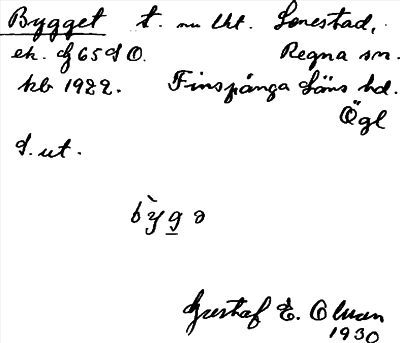 Bygget t. nu lht. Sonestad,
ek. J 65 d O. Regna sn.
kb 1922. Finspånga läns hd.
Ögl
d. ut.
bỳgə
Gustaf E. Olman
1930